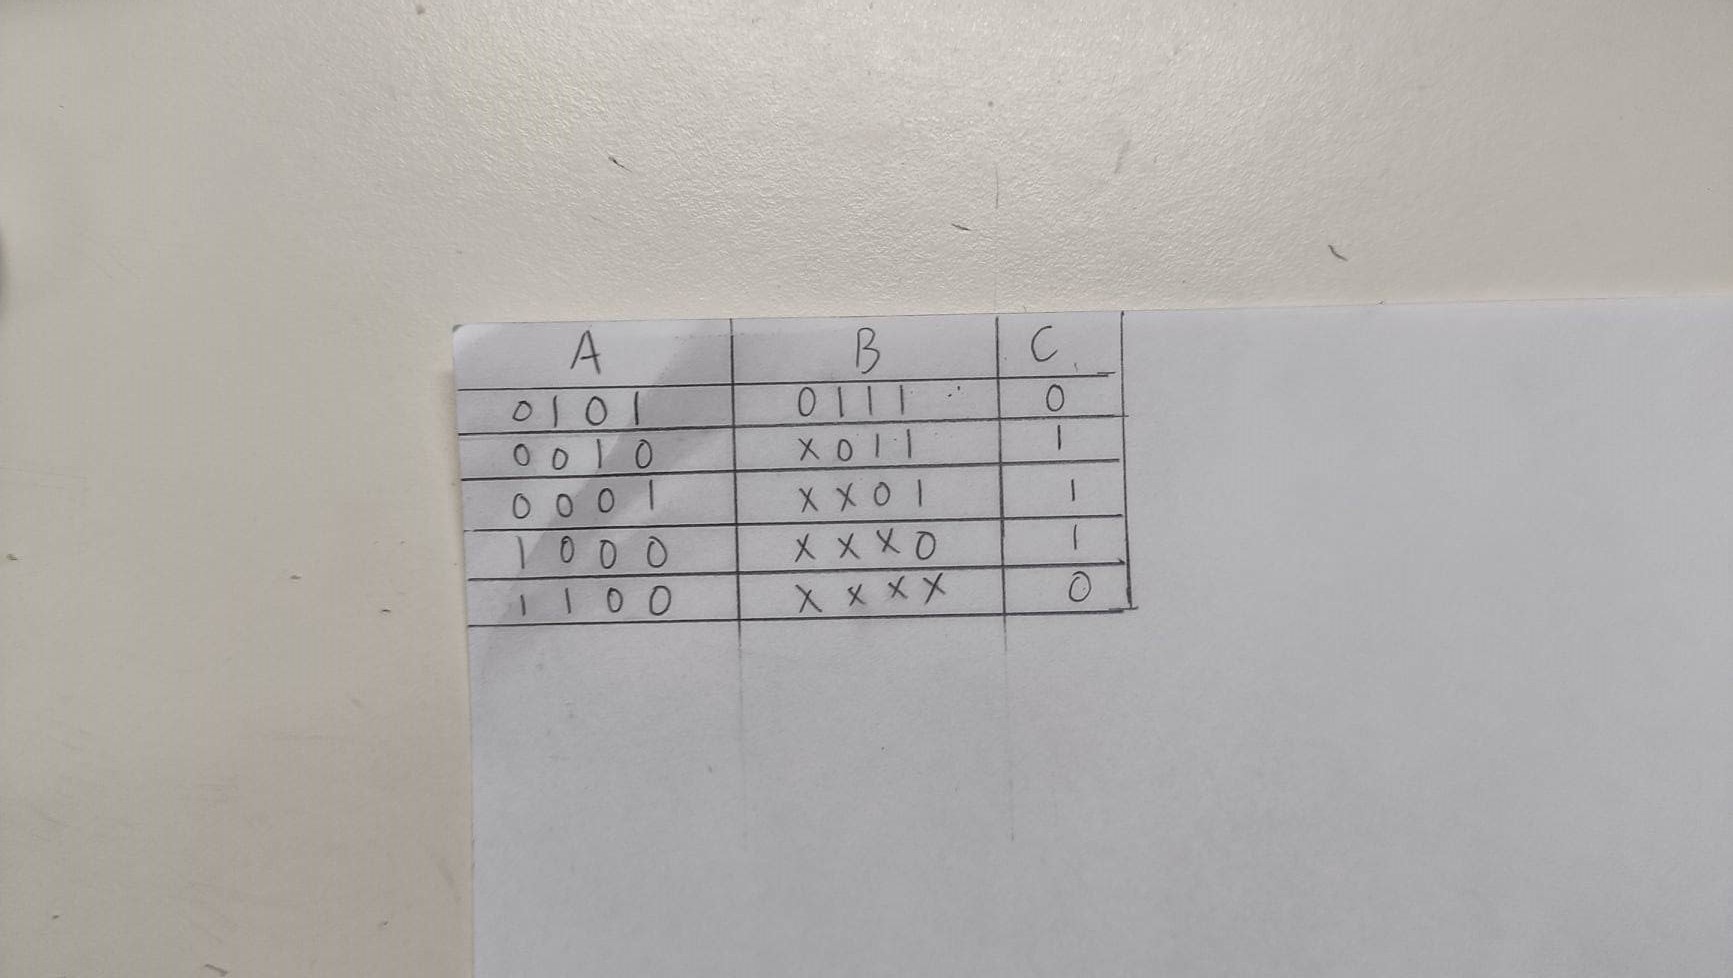 A B C
0101 0111 0
0010 X011 1
0001 XX01 1
1000 XXX0 1
1100 XXXX 0